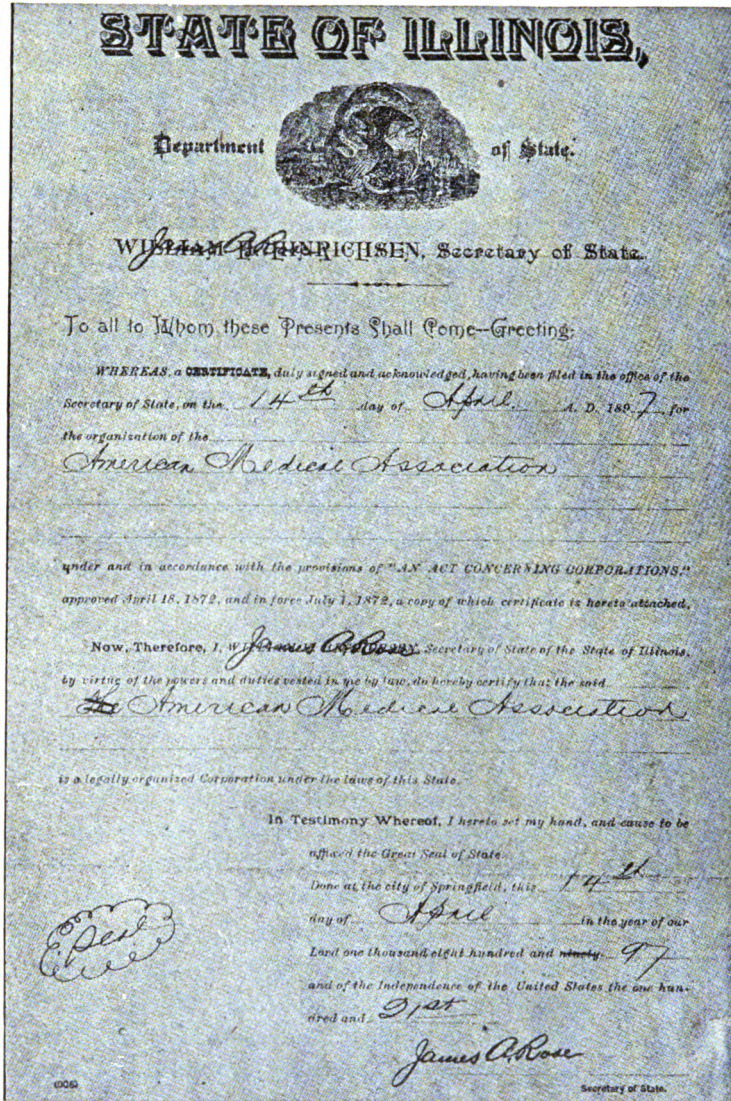 STATE OF ILLINOIS,
Department of State.
James A Rose
WILLIAM H. HINRICHSEN, Secretary of State.
To all to Whom these Presents Shall Come--Greeting:
WHEREAS, a CERTIFICATE, duly signed and acknowledged, having been filed in the office of the
Secretary of State, on the 14th day of April A. D. 1897 for
the organization of the
American Medical Association
under and in accordance with the provisions of "AN ACT CONCERNING CORPORATIONS,"
approved April 18, 1872, and in force July 1, 1872, a copy of which certificate is hereto attached.
Now, Therefore, I, James A Rose Secretary of State of the State of Illinois,
by virtue of the powers and duties vested in me by law, do hereby certify that the said
The American Medical Association
is a legally organized Corporation under the laws of this State.
In Testimony Whereof, I hereto set my hand, and cause to be
affixed the Great Seal of State.
Done at the city of Springfield, this 14th
day of April in the year of our
Lord one thousand eight hundred and ninety 97
and of the Independence of the United States the one hun-
dred and 21st
Seal
James A. Rose
Secretary of State.